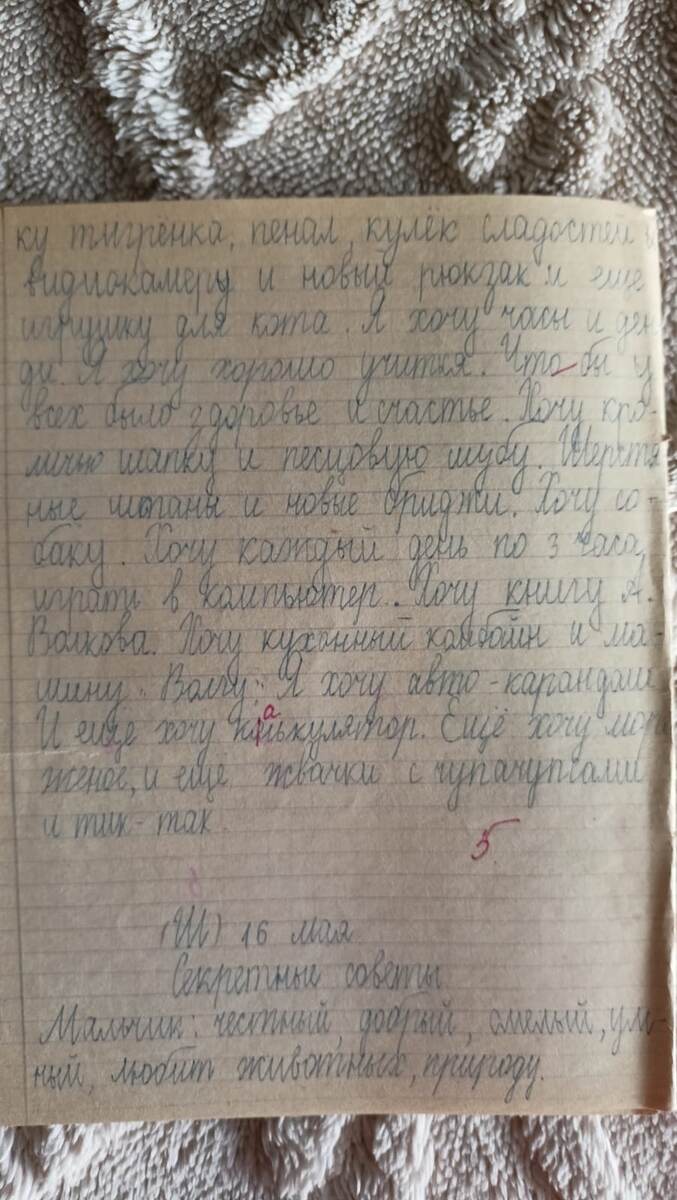 ку тигрёнка, пенал, кулёк сладостей и
видиокамеру и новый рюкзак и еще
игрушку для кота. Я хочу часы и ден
ди. Я хочу хорошо учится. Что бы у
всех было здоровье и счастье. Хочу кро-
личью шапку и песцовую шубу. Шерстя
ные штаны и новые бриджи. Хочу со-
баку. Хочу каждый день по 3 часа
играть в компьютер. Хочу книгу А.
Волкова. Хочу кухонный комбайн и ма-
шину "Волгу". Я хочу авто-карандаш
И ещё хочу калькулятор. Ещё хочу моро
женое, и ещё жвачки с чупачупсами
и тик-так.
5
(Ш) 16 мая
Секретные советы
Мальчик: честный, добрый, смелый, ум-
ный, любит животных, природу.